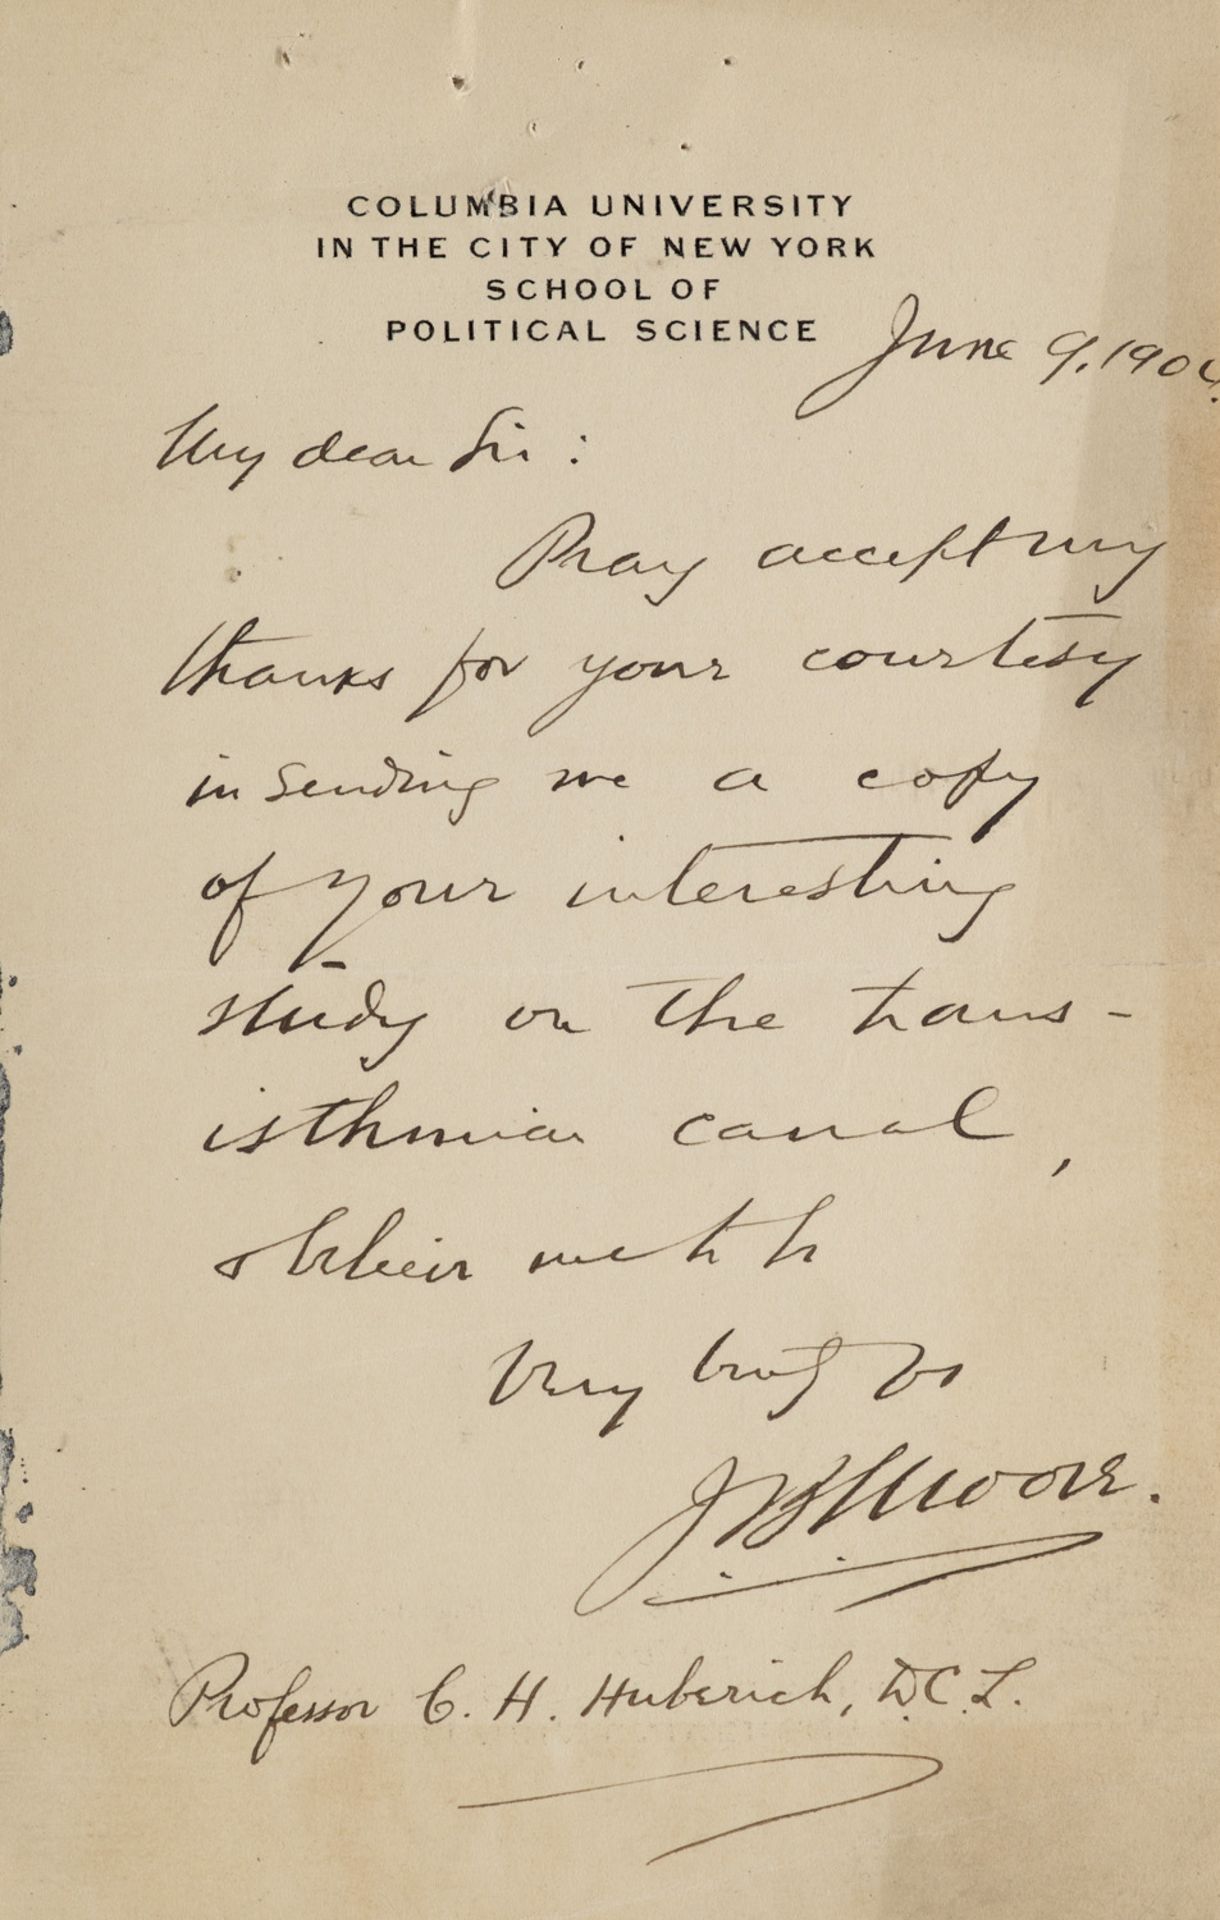 COLUMBIA UNIVERSITY
IN THE CITY OF NEW YORK
SCHOOL OF
POLITICAL SCIENCE
June 9, 1904.
My dear Sir:
Pray accept my
thanks for your courtesy
in sending me a copy
of your interesting
study on the trans-
isthmian canal,
& believe me to be
Very truly yrs
J B Moore.
Professor C. H. Huberich, D.C.L.